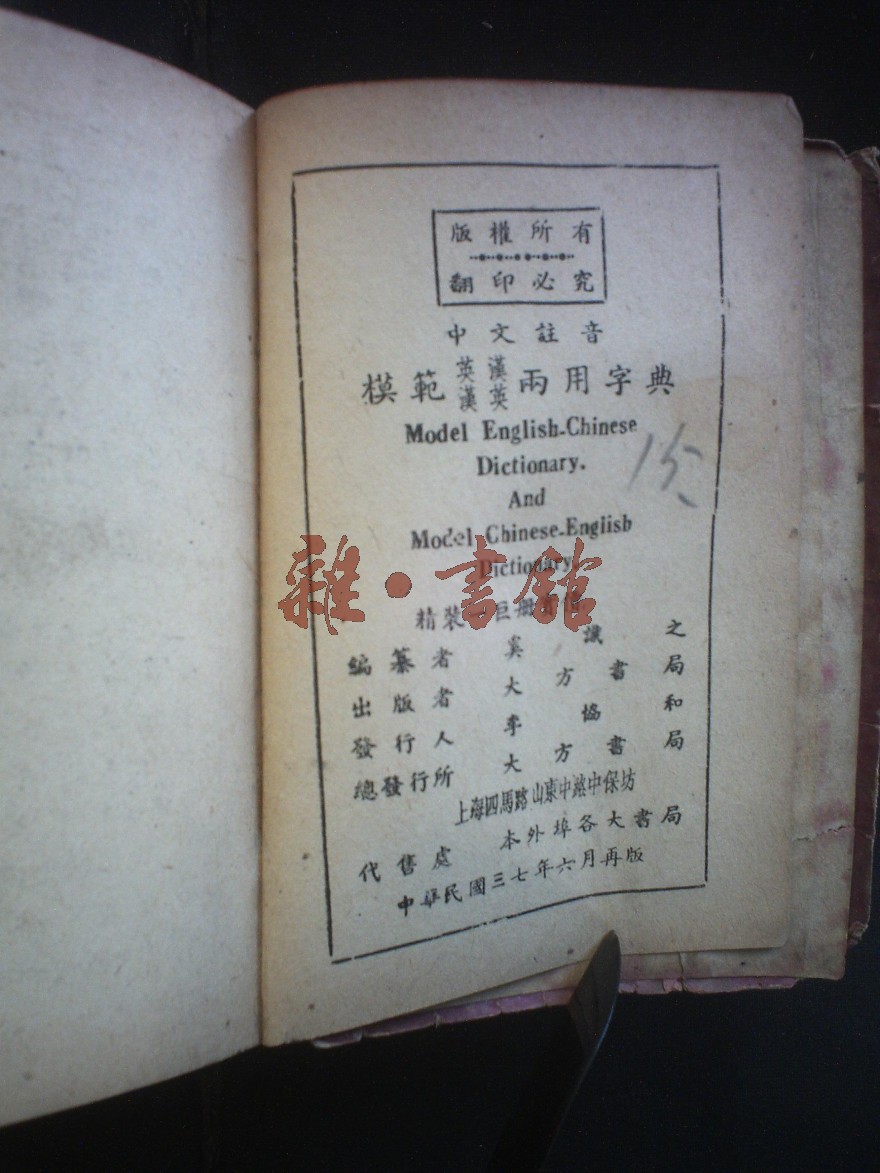 版權所有
翻印必究
中文註音
模範英漢漢英兩用字典
Model English-Chinese
Dictionary.
And
Model Chinese-English
Dictionary
15
雜·書館
精裝一巨冊
編纂者 吳識之
出版者 大方書局
發行人 李協和
總發行所 大方書局
上海四馬路山東中路中保坊
代售處 本外埠各大書局
中華民國三七年六月再版